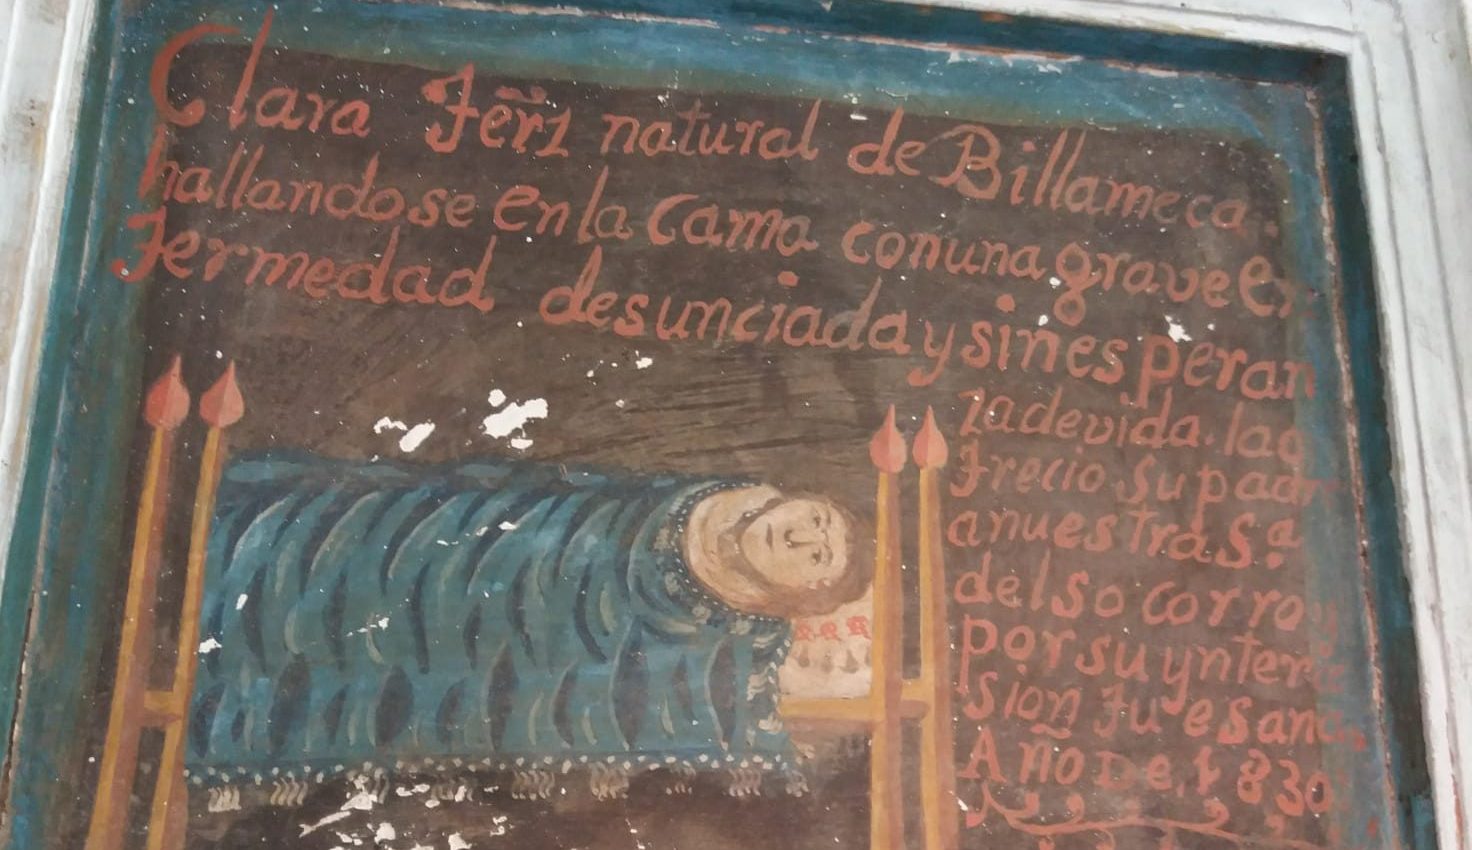 Clara Fẽrz natural de Billameca
hallandose en la cama con una grave en
fermedad desunciada y sin esperan
za de vida. la o
frecio su padre
a nuestra Sª
del socorro y
por su ynterce
sion fue sana
Año De 1830